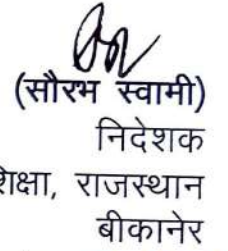 (सौरभ स्वामी)
निदेशक
शिक्षा, राजस्थान
बीकानेर